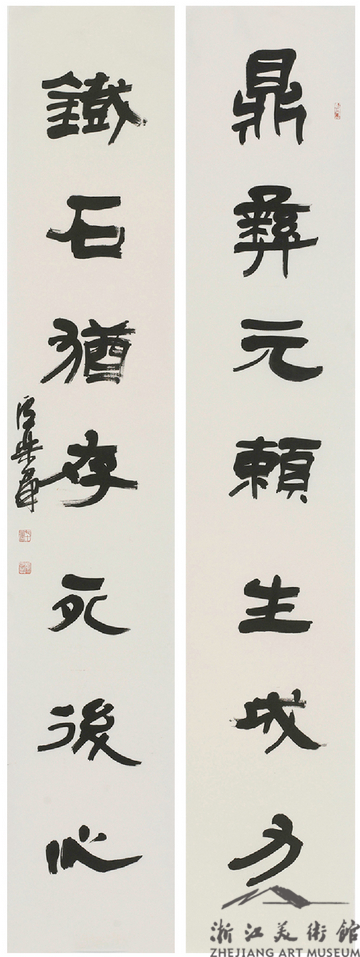 鼎彝元賴生成力
鐵石猶存死後心
浙江美術館
ZHEJIANG ART MUSEUM